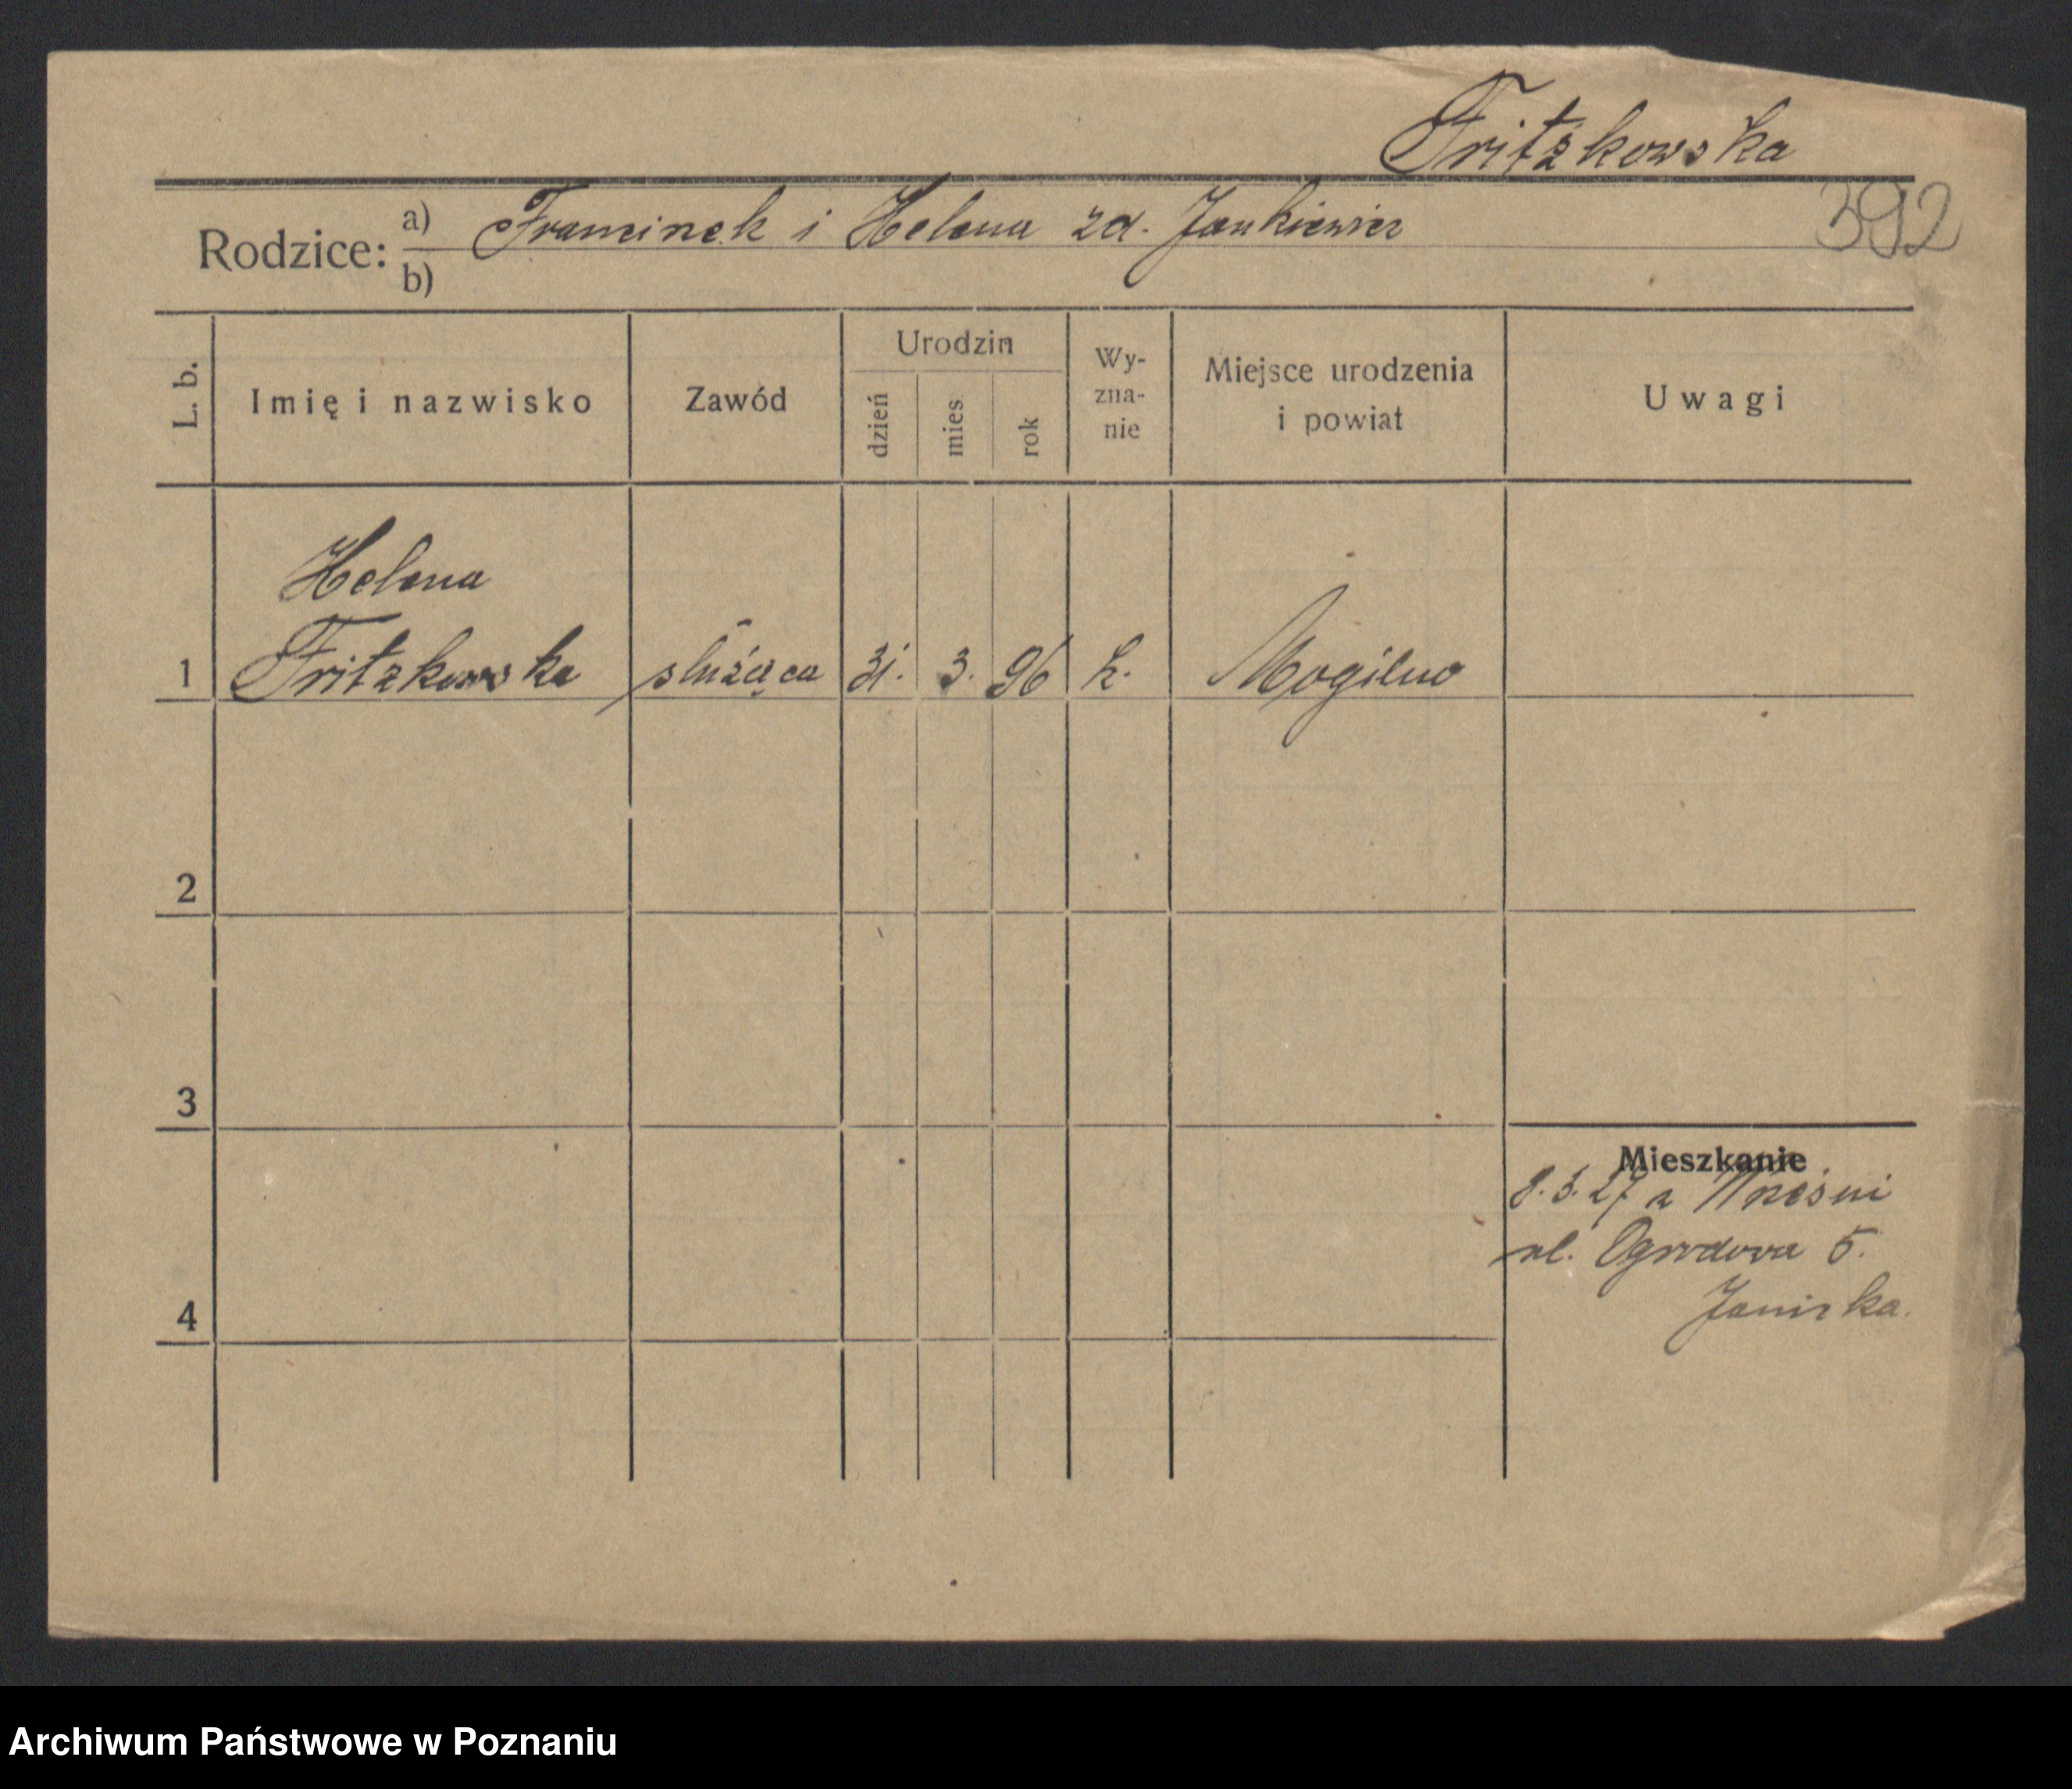 Fritzkowska
392
Rodzice: a) Franciszek i Helena zd. Jankiewicz
b)
L. b. Imię i nazwisko Zawód Urodzin dzień mies rok Wy-zna-nie Miejsce urodzenia i powiat Uwagi
Helena
1 Fritzkowska służąca 31. 3. 96 k. Mogilno
2
3
Mieszkanie
8. 3. 27 z Wrześni
ul. Ogrodowa 5.
4
Archiwum Państwowe w Poznaniu